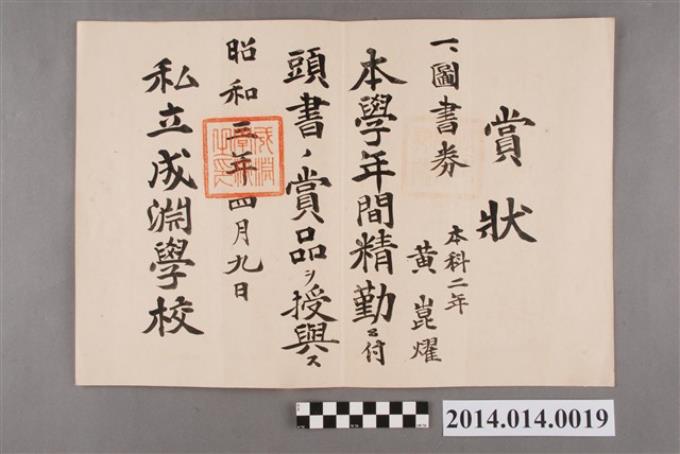 賞狀
一、圖書券
本科二年
黃崑燿
本學年間精勤ニ付
頭書ノ賞品ヲ授與ス
昭和三年四月九日
私立成淵學校
2014.014.0019